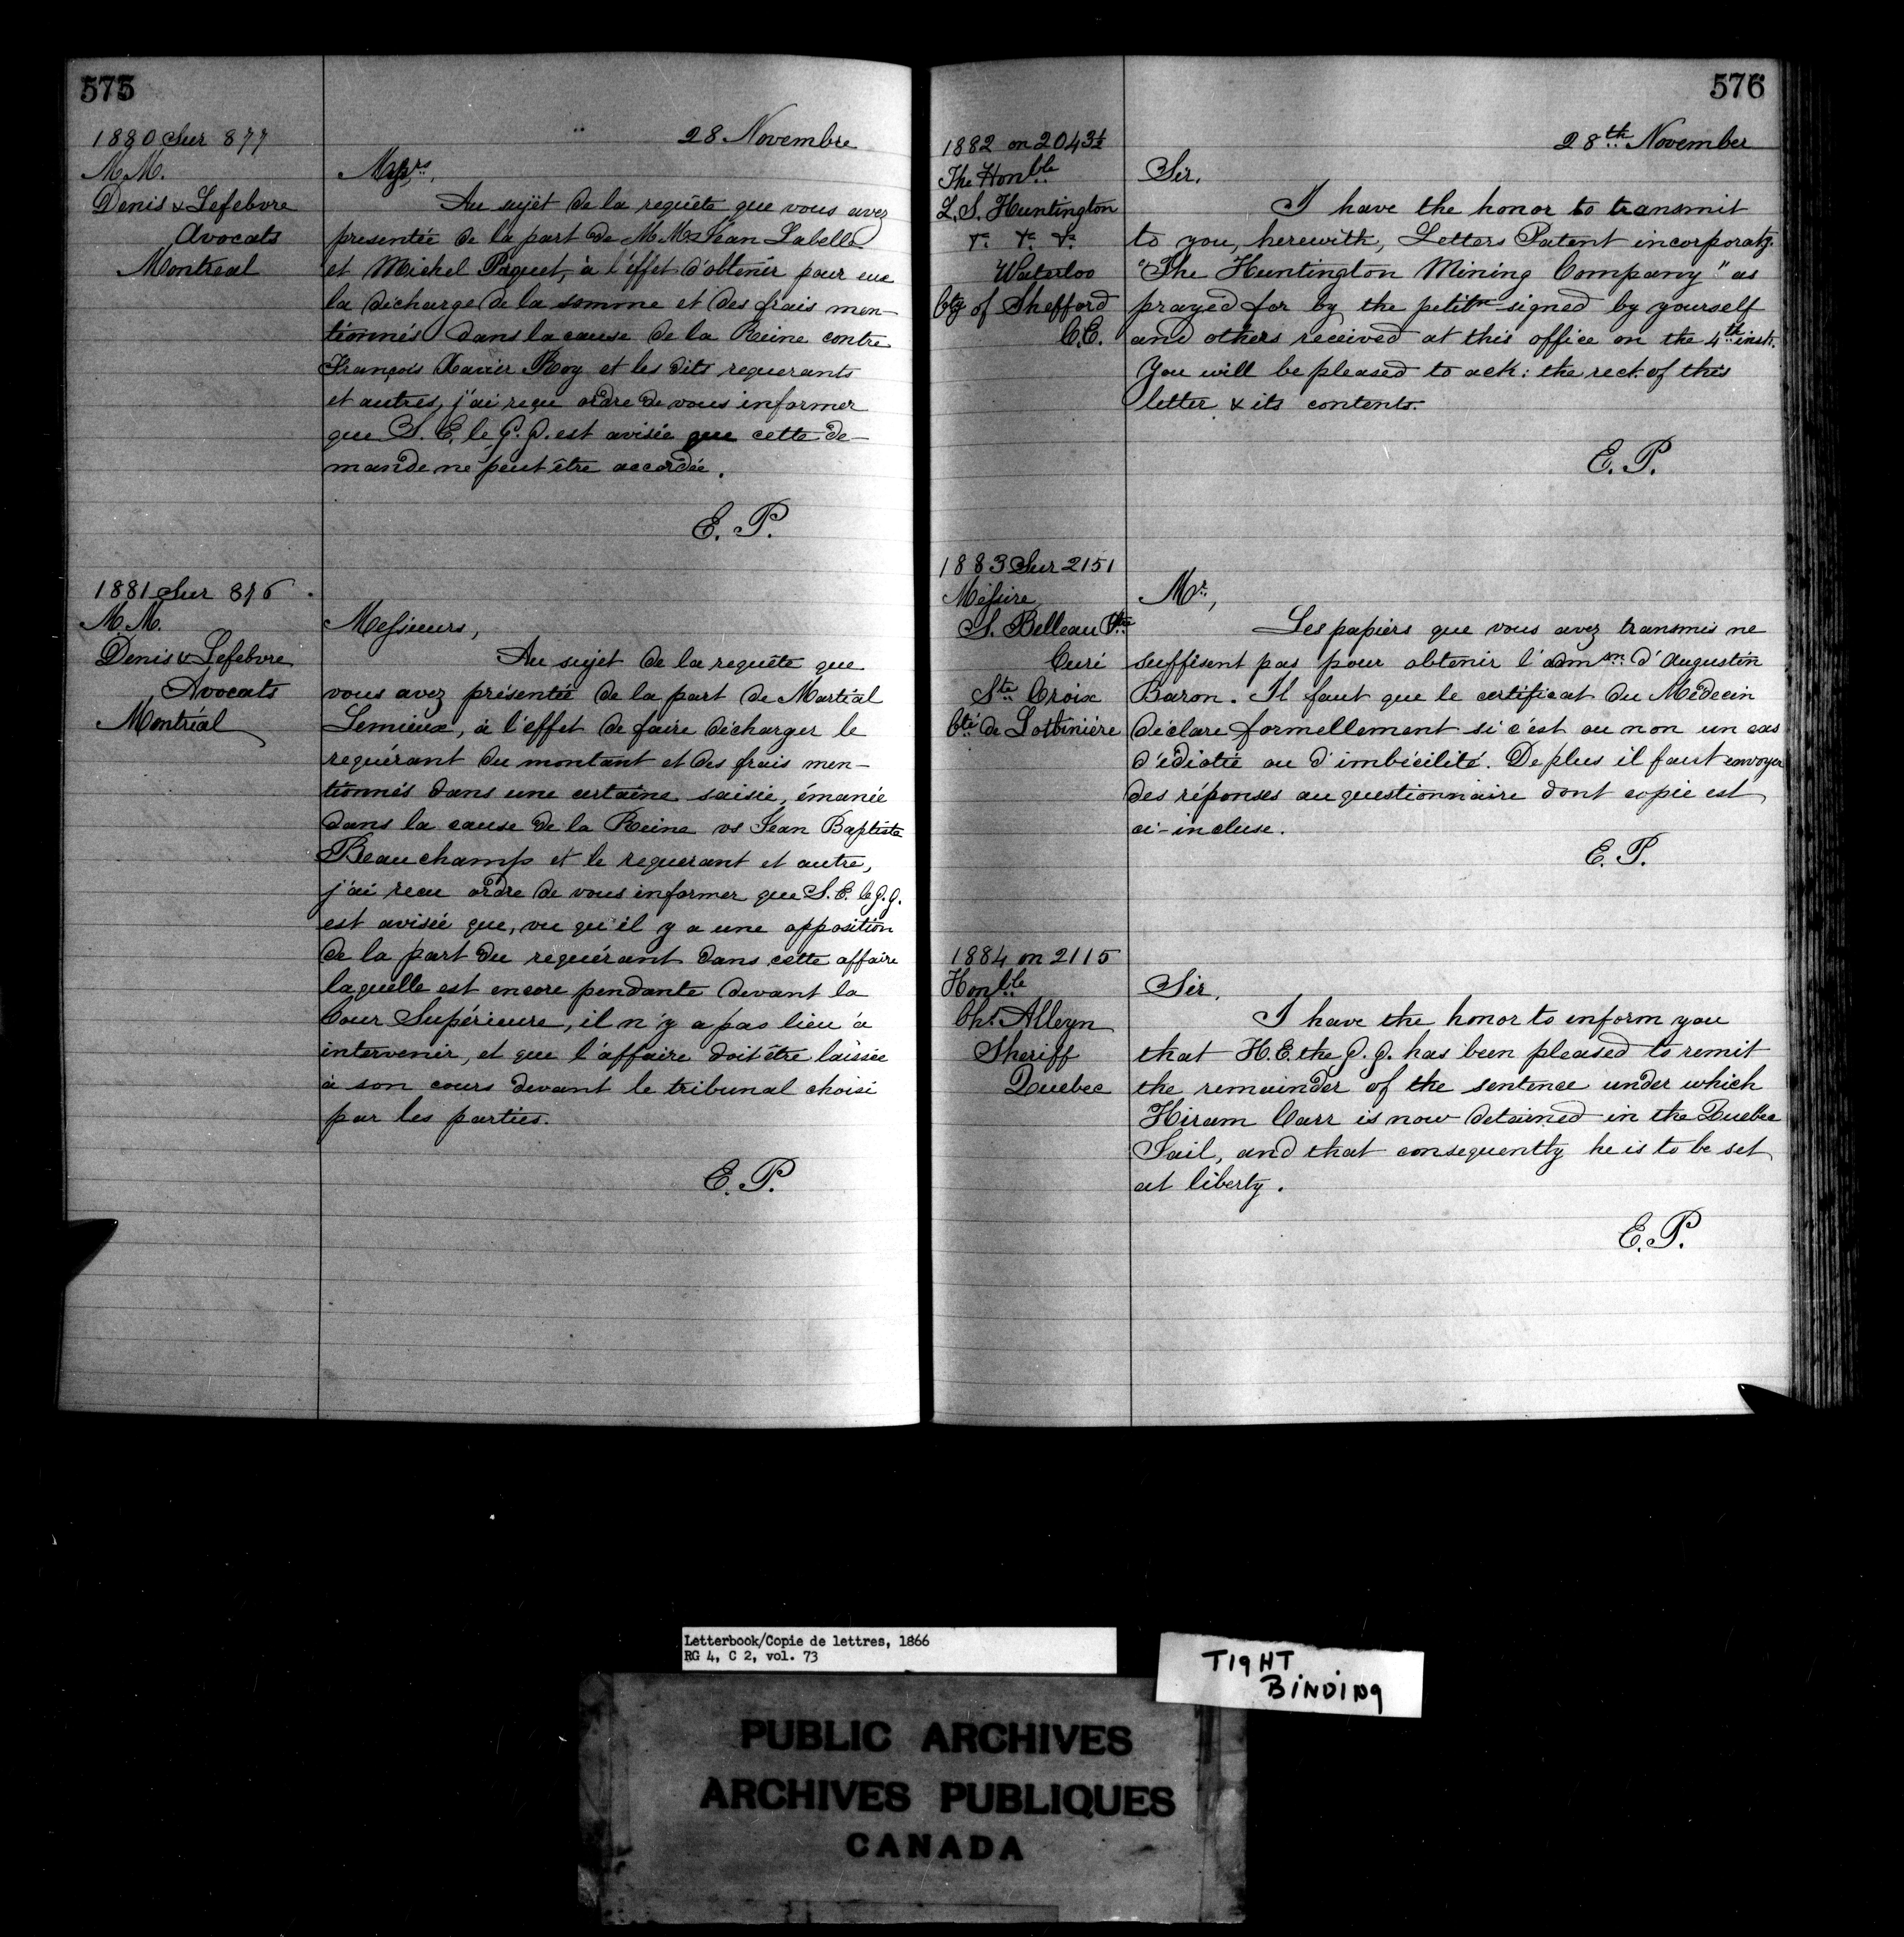 575
28 Novembre
1880 Sur 877
M.M.
Denis & Lefebvre
Avocats
Montreal
Messrs,
Au sujet de la requête que vous avez
presentée de la part de M.M. Jean Labelle
et Michel Paquet, à l'effet d'obtenir pour eux
la décharge de la somme et des frais men-
tionnés dans la cause de la Reine contre
François Xavier Roy et les dits requerants
et autres, j'ai reçu ordre de vous informer
que S. E. le G. G. est avisée que cette de-
mande ne peut être accordée.
E. P.
1881 Sur 876
M.M.
Denis & Lefebvre
Avocats
Montréal
Messieurs,
Au sujet de la requête que
vous avez présentée de la part de Martial
Lemieux, à l'effet de faire décharger le
requérant du montant et des frais men-
tionnés dans une certaine saisie, émanée
dans la cause de la Reine vs Jean Baptiste
Beauchamp et le requerant et autre,
j'ai recu ordre de vous informer que S. E. le G. G.
est avisée que, vu qu'il y a une opposition
de la part du requérant dans cette affaire
laquelle est encore pendante devant la
Cour Supérieure, il n'y a pas lieu à
intervenir, et que l'affaire doit être laissée
à son cours devant le tribunal choisi
par les parties.
E. P.
576
28th November
1882 on 2043½
The Honble
L. S. Huntington
&c &c &c
Waterloo
Cty of Shefford
C.E.
Sir,
I have the honor to transmit
to you, herewith, Letters Patent incorporatg.
"The Huntington Mining Company" as
prayed for by the petitn signed by yourself
and others received at this office on the 4th inst.
You will be pleased to ack: the rect. of this
letter & its contents.
E. P.
1883 Sur 2151
Messire
S. Belleau Ptre
Curé
Ste Croix
Cté de Lotbinière
Mr,
Les papiers que vous avez transmis ne
suffisent pas pour obtenir l'admon d'Augustin
Baron. Il faut que le certificat du Médecin
déclare formellement si c'est ou non un cas
d'idiotie ou d'imbécilité. De plus il faut envoyer
des réponses au questionnaire dont copie est
ci-incluse.
E. P.
1884 on 2115
Honble
Chs. Alleyn
Sheriff
Quebec
Sir,
I have the honor to inform you
that H. E. the G. G. has been pleased to remit
the remainder of the sentence under which
Hiram Carr is now detained in the Quebec
Jail, and that consequently he is to be set
at liberty.
E. P.
Letterbook/Copie de lettres, 1866
RG 4, C 2, vol. 73
TIGHT
BINDING
PUBLIC ARCHIVES
ARCHIVES PUBLIQUES
CANADA